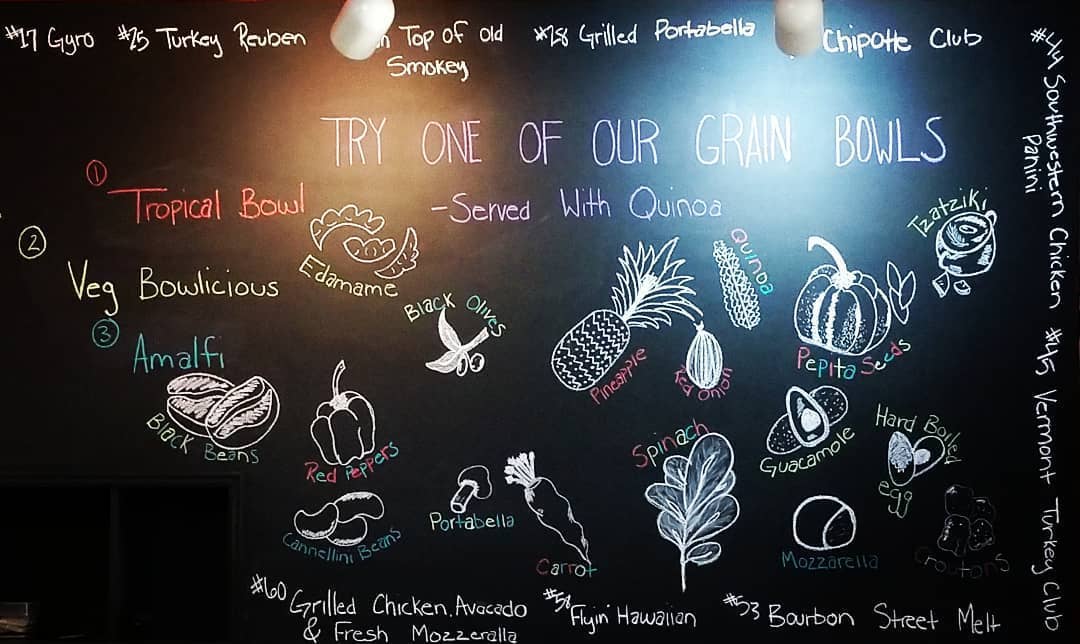 #17 Gyro #25 Turkey Reuben
Top of old
Smokey
#28 Grilled Portabella
Chipotle Club
#44 Southwestern Chicken
Panini
#45 Vermont Turkey Club
TRY ONE OF OUR GRAIN BOWLS
① Tropical Bowl
-Served With Quinoa
② Veg Bowlicious
③ Amalfi
Edamame
Black Olives
Pineapple
Quinoa
Red Onion
Pepita Seeds
Tzatziki
Black Beans
Red Peppers
Cannellini Beans
Portabella
Carrot
Spinach
Guacamole
Hard Boiled
egg
Mozzarella
Croutons
#60 Grilled Chicken, Avocado
& Fresh Mozzeralla
#58 Flyin' Hawaiian
#53 Bourbon Street Melt